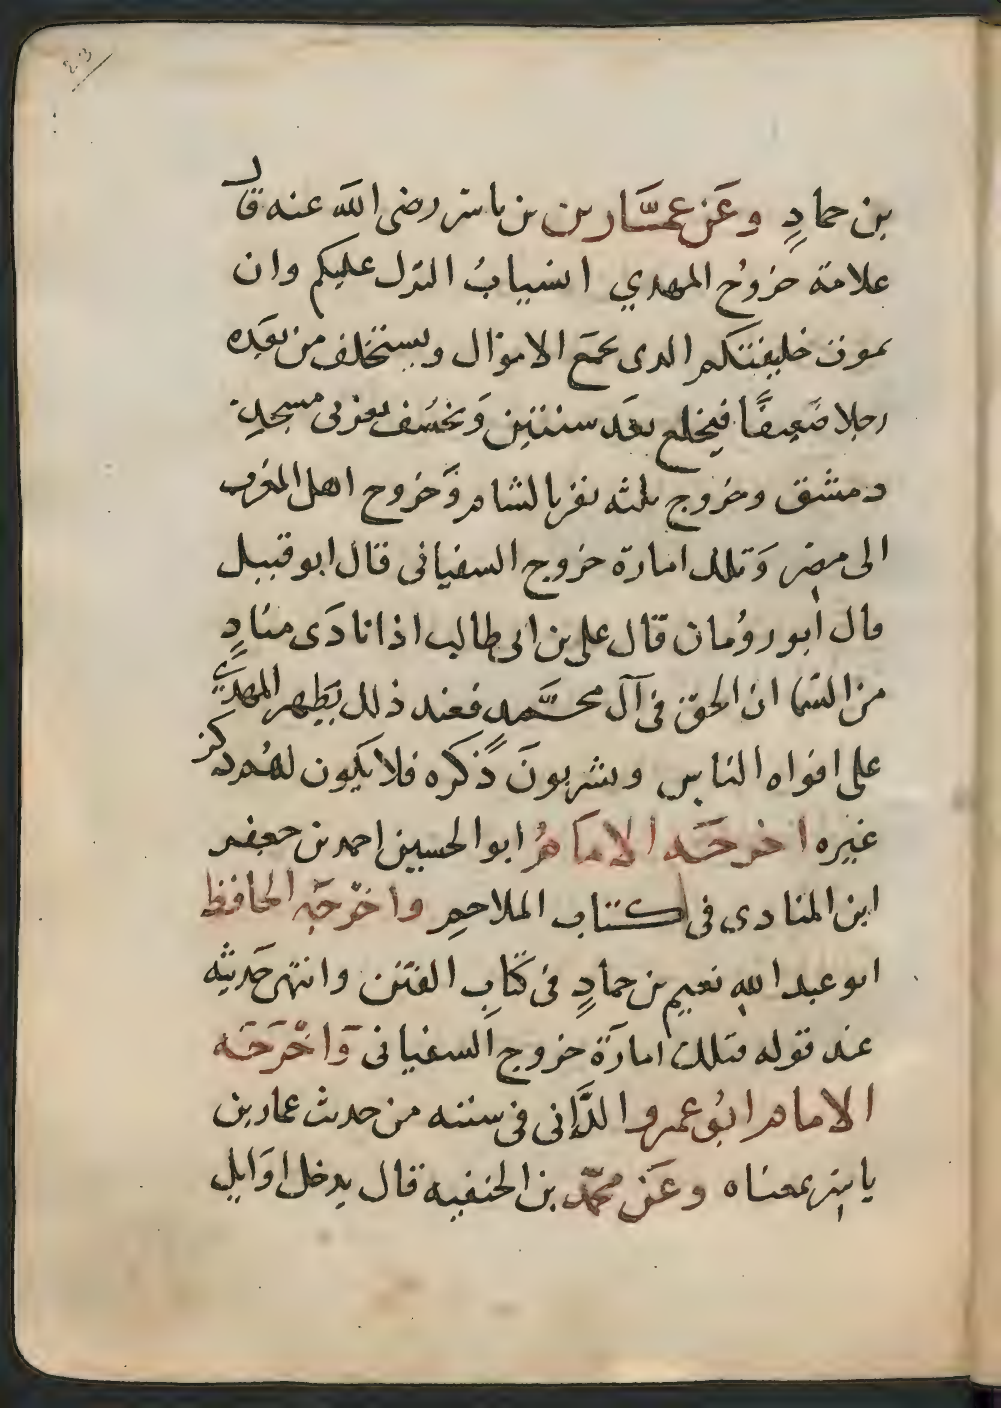 23
بن حمادٍ وعَن عمَّار بن بن ياسر رضى الله عنه قال
علامة خروُج المهدي انسيابُ الترك عليكم وان
يموت خليفتكم الدى يجمَع الاموَال ويستخلف من بعَده
رجلا ضعيفًا فيخلع بعَد سنتين وَيخسُف بغربى مسجدِ
دمشق وخروج ثلثه نفر بالشام وَخروج اهل المغرب
الى مصر وَتلك امارة خروج السفيانى قال ابو قبيل
قال أبو روُمان قال على بن ابى طالب اذا نادَى منادٍ
من السَّما ان الحق فى آل محمَّدٍ فعند ذلك يظهر المهدى
على افواه الناس ويشربونَ ذكره فلا يكون لهُم ذكر
غيره اخرجَه الامَامُ ابو الحسين احمد بن جعفر
ابن المنادى فى كتاب الملاحم واخرجَه الحافظ
ابو عبد اللهِ نعيم بن حمادٍ فى كتابِ الفتَن وانتهى حَديثه
عند قوله فتلك امارَة خروج السفيانى وَاخرَجَه
الامام ابُو عمرو الدَّانى فى سننه من حديث عمار بن
ياسر بمعناه وعَن محمَّد بن الحنفيه قال يدخل اوَايل